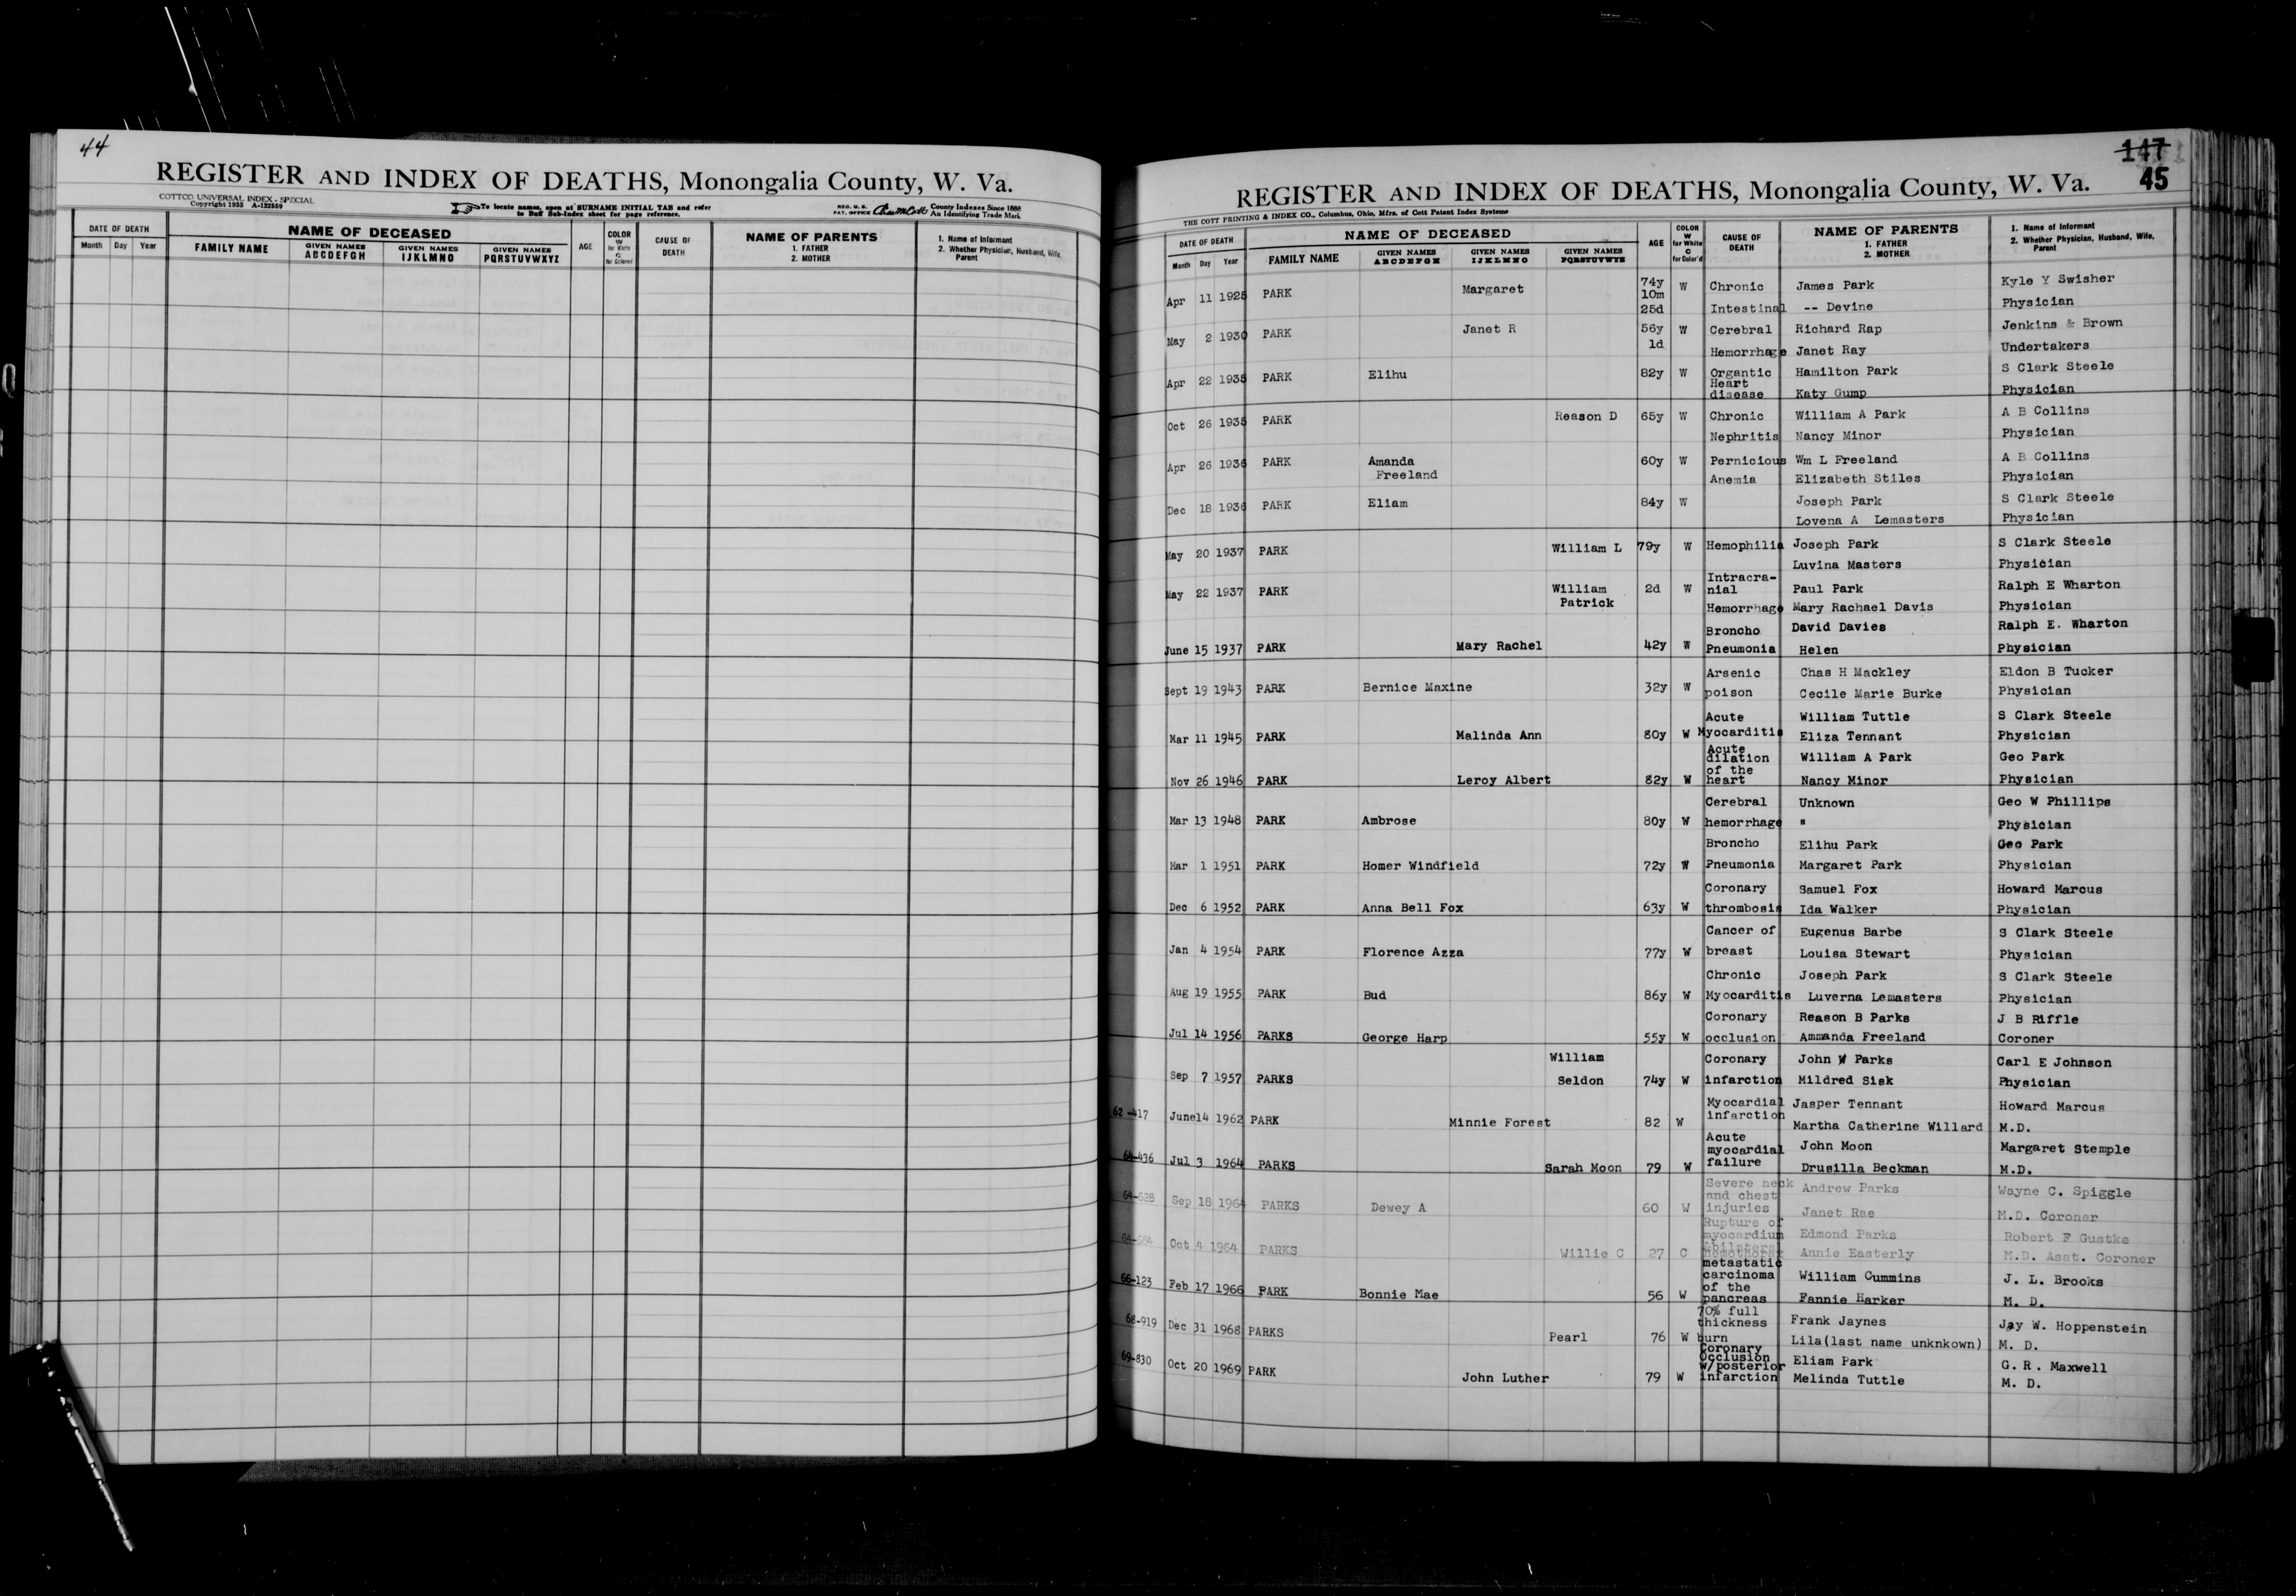 44
REGISTER AND INDEX OF DEATHS, Monongalia County, W. Va.
COTTCO UNIVERSAL INDEX - SPECIAL
Copyright 1933 A-122559
To locate names, open at SURNAME INITIAL TAB and refer
to Buff Sub-Index sheet for page reference.
REG. U. S.
PAT. OFFICE
County Indexes Since 1888
An Identifying Trade Mark
DATE OF DEATH
Month Day Year
NAME OF DECEASED
FAMILY NAME
GIVEN NAMES
ABCDEFGH
GIVEN NAMES
IJKLMNO
GIVEN NAMES
PQRSTUVWXYZ
AGE
COLOR
W
for White
C
for Colored
CAUSE OF
DEATH
NAME OF PARENTS
1. FATHER
2. MOTHER
1. Name of Informant
2. Whether Physician, Husband, Wife,
Parent
147
45
REGISTER AND INDEX OF DEATHS, Monongalia County, W. Va.
THE COTT PRINTING & INDEX CO., Columbus, Ohio, Mfrs. of Cott Patent Index Systems
DATE OF DEATH
Month Day Year
NAME OF DECEASED
FAMILY NAME
GIVEN NAMES
ABCDEFGH
GIVEN NAMES
IJKLMNO
GIVEN NAMES
PQRSTUVWYZ
AGE
COLOR
W
for White
C
for Color'd
CAUSE OF
DEATH
NAME OF PARENTS
1. FATHER
2. MOTHER
1. Name of Informant
2. Whether Physician, Husband, Wife,
Parent
Apr 11 1925 PARK Margaret 74y 10m 25d W Chronic James Park Kyle Y Swisher
Intestinal -- Devine Physician
May 2 1930 PARK Janet R 56y 1d W Cerebral Richard Rap Jenkins & Brown
Hemorrhage Janet Ray Undertakers
Apr 22 1935 PARK Elihu 82y W Organtic Heart Hamilton Park S Clark Steele
disease Katy Gump Physician
Oct 26 1935 PARK Reason D 65y W Chronic William A Park A B Collins
Nephritis Nancy Minor Physician
Apr 26 1936 PARK Amanda 60y W Pernicious Wm L Freeland A B Collins
Freeland Anemia Elizabeth Stiles Physician
Dec 18 1936 PARK Eliam 84y W Joseph Park S Clark Steele
Lovena A Lemasters Physician
May 20 1937 PARK William L 79y W Hemophilia Joseph Park S Clark Steele
Luvina Masters Physician
May 22 1937 PARK William 2d W Intracra- nial Paul Park Ralph E Wharton
Patrick Hemorrhage Mary Rachael Davis Physician
Broncho David Davies Ralph E. Wharton
June 15 1937 PARK Mary Rachel 42y W Pneumonia Helen Physician
Arsenic Chas H Mackley Eldon B Tucker
Sept 19 1943 PARK Bernice Maxine 32y W poison Cecile Marie Burke Physician
Acute William Tuttle S Clark Steele
Mar 11 1945 PARK Malinda Ann 80y W Myocarditis Eliza Tennant Physician
Acute dilation William A Park Geo Park
Nov 26 1946 PARK Leroy Albert 82y W of the heart Nancy Minor Physician
Cerebral Unknown Geo W Phillips
Mar 13 1948 PARK Ambrose 80y W hemorrhage " Physician
Broncho Elihu Park Geo Park
Mar 1 1951 PARK Homer Windfield 72y W Pneumonia Margaret Park Physician
Coronary Samuel Fox Howard Marcus
Dec 6 1952 PARK Anna Bell Fox 63y W thrombosis Ida Walker Physician
Cancer of Eugenus Barbe S Clark Steele
Jan 4 1954 PARK Florence Azza 77y W breast Louisa Stewart Physician
Chronic Joseph Park S Clark Steele
Aug 19 1955 PARK Bud 86y W Myocarditis Luverna Lemasters Physician
Coronary Reason B Parks J B Riffle
Jul 14 1956 PARKS George Harp 55y W occlusion Ammanda Freeland Coroner
William Coronary John W Parks Carl E Johnson
Sep 7 1957 PARKS Seldon 74y W infarction Mildred Sisk Physician
62-417 June14 1962 PARK Minnie Forest 82 W Myocardial infarction Jasper Tennant Howard Marcus
Martha Catherine Willard M.D.
64-436 Jul 3 1964 PARKS Sarah Moon 79 W Acute myocardial failure John Moon Margaret Stemple
Drusilla Beckman M.D.
64-628 Sep 18 1964 PARKS Dewey A 60 W Severe neck and chest injuries Andrew Parks Wayne C. Spiggle
Janet Rae M.D. Coroner
64-684 Oct 4 1964 PARKS Willie C 27 C Rupture of myocardium &bilateral hemothorax Edmond Parks Robert F Gustke
Annie Easterly M.D. Asst. Coroner
66-123 Feb 17 1966 PARK Bonnie Mae 56 W metastatic carcinoma of the pancreas William Cummins J. L. Brooks
Fannie Harker M. D.
68-919 Dec 31 1968 PARKS Pearl 76 W 70% full thickness burn Frank Jaynes Jay W. Hoppenstein
Lila(last name unknkown) M. D.
69-830 Oct 20 1969 PARK John Luther 79 W Coronary Occlusion w/posterior infarction Eliam Park G. R. Maxwell
Melinda Tuttle M. D.